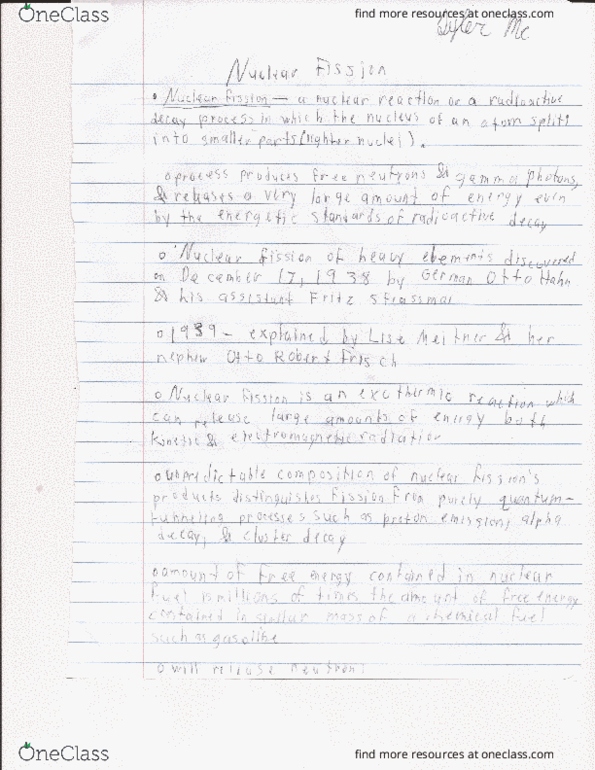 OneClass
find more resources at oneclass.com
Tyler Mc
Nuclear Fission
• Nuclear Fission — a nuclear reaction or a radioactive
decay process in which the nucleus of an atom splits
into smaller parts (lighter nuclei).
o process produces free neutrons & gamma photons,
& releases a very large amount of energy even
by the energetic standards of radioactive decay
o Nuclear fission of heavy elements discovered
on December 17, 1938 by German Otto Hahn
& his assistant Fritz Strassman
o 1939 - explained by Lise Meitner & her
nephew Otto Robert Frisch
o Nuclear fission is an exothermic reaction which
can release large amounts of energy both
kinetic & electromagnetic radiation
o unpredictable composition of nuclear fission's
products distinguishes fission from purely quantum-
tunneling processes such as proton emission, alpha
decay, & cluster decay
o amount of free energy contained in nuclear
fuel is millions of times the amount of free energy
contained in similar mass of a chemical fuel
such as gasoline
o will release neutrons
OneClass
find more resources at oneclass.com